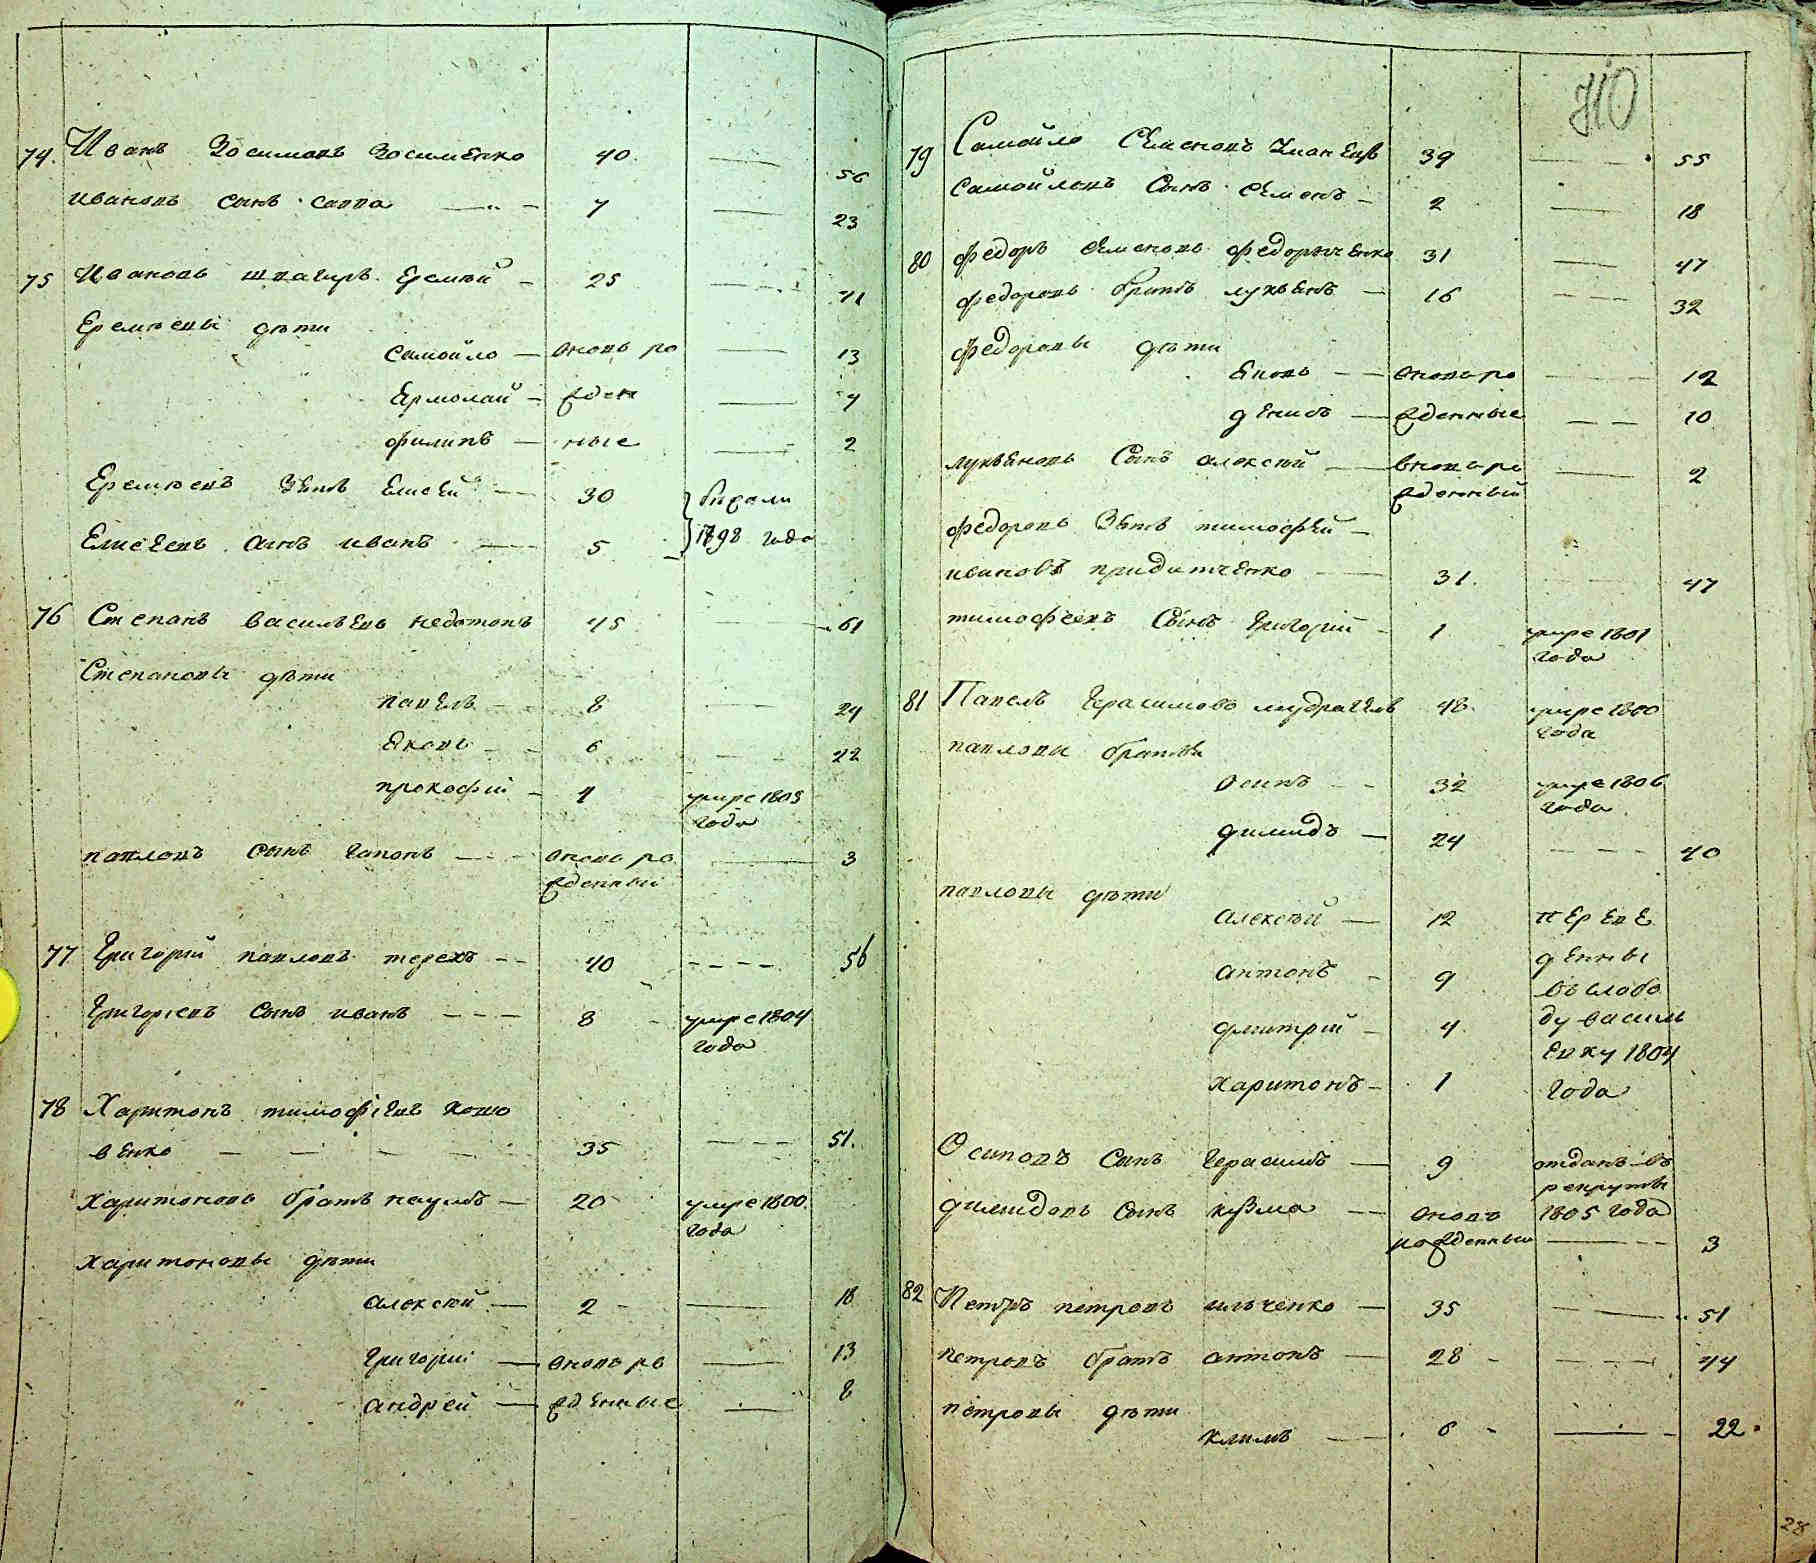 74. Иванъ Зосимовъ Зосименко 40. — 56
Ивановъ сынъ савва — 7 — 23
75 Ивановъ швагиръ Еремѣй — 25 — 41
Еремѣевы дѣти
Самойло — вновь ро — 13
Ермолай — жден — 4
филипъ — ные — 2
Еремѣевъ зять Елисей — 30
Елисеевъ сынъ иванъ — 5 1798 года
76 Степанъ васильевъ недотопъ 45 — 61
Степановы дѣти
павелъ — 8 — 24
яковъ — 6 — 22
прокофий — 4 умре 1803
года
павловъ сынъ гапонъ — вновь ро — 3
жденный
77 Григорий павловъ терехъ — 40 — 56
Григориевъ сынъ иванъ — 8 — умре 1804
года
78 Харитонъ тимофѣевъ
венко — 35 — 51.
Харитоновъ братъ наумъ — 20 умре 1800
года
Харитоновы дѣти
алексѣй — 2 — 18
Григорий — вновь ро — 13
андрей — жденные — 8
410
79 Самойло Семеновъ 39 — 55
самойловъ сынъ семенъ — 2 — 18
80 федоръ семеновъ федорченко 31 — 47
федоровъ братъ лукьянъ — 16 — 32
федоровы дѣти
яковъ — вновь ро — 12
денисъ — жденные — 10
лукьяновъ сынъ алексѣй — вновь ро — 2
жденный
федоровъ зять тимофей —
ивановъ придатченко — 31. — 47
тимофеевъ сынъ григорий — 1 умре 1801
года
81 Павелъ Герасимовъ мудрагель 48 умре 1800
года
павловы братья
осипъ — 32 умре 1806
года
димидъ — 24 — 40
павловы дѣти
алексѣй — 12 переве
антонъ — 9 дены
въ слобо
дмитрий — 4 ду васил
евку 1804
харитонъ — 1 года
Осиповъ сынъ Герасимъ — 9 отданъ въ
рекруты
димидовъ сынъ кузма — вновь 1805 года
рожденный — 3
82 Петръ петровъ ильченко — 35 — 51
петровъ братъ антонъ — 28 — 44
петровы дѣти
климъ — 6 — 22.
28